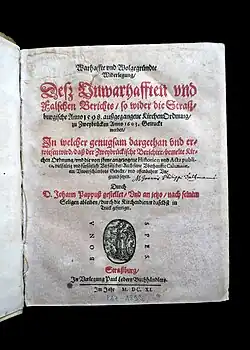 Warhaffte vnd Wolgegründte
Widerlegung/
Deß Vnwarhafften vnd
Falschen Berichts/ so wider die Straß-
burgische Anno 1598. außgegangene KirchenOrdnung/
zu Zweybrücken Anno 1603. Getruckt
worden/
In welcher genugsam dargethan vnd er-
wiesen wird/ daß der Zweybrückische Berichter/ bemelte Kir-
chen Ordnung/ vnd die von jhme angezogene Historien vnd Acta publi-
ca,
Durch
D. Johann Pappum gestellet/ Vnd an jetzo/ nach seinem
Seligen ableiben/ durch die Kirchendiener daselbst in
Truck gefertiget.
BONA
SPES
Straßburg/
In Verlegung Paul Ledertz Buchhändlers.
Im Jahr M. DC. XI.